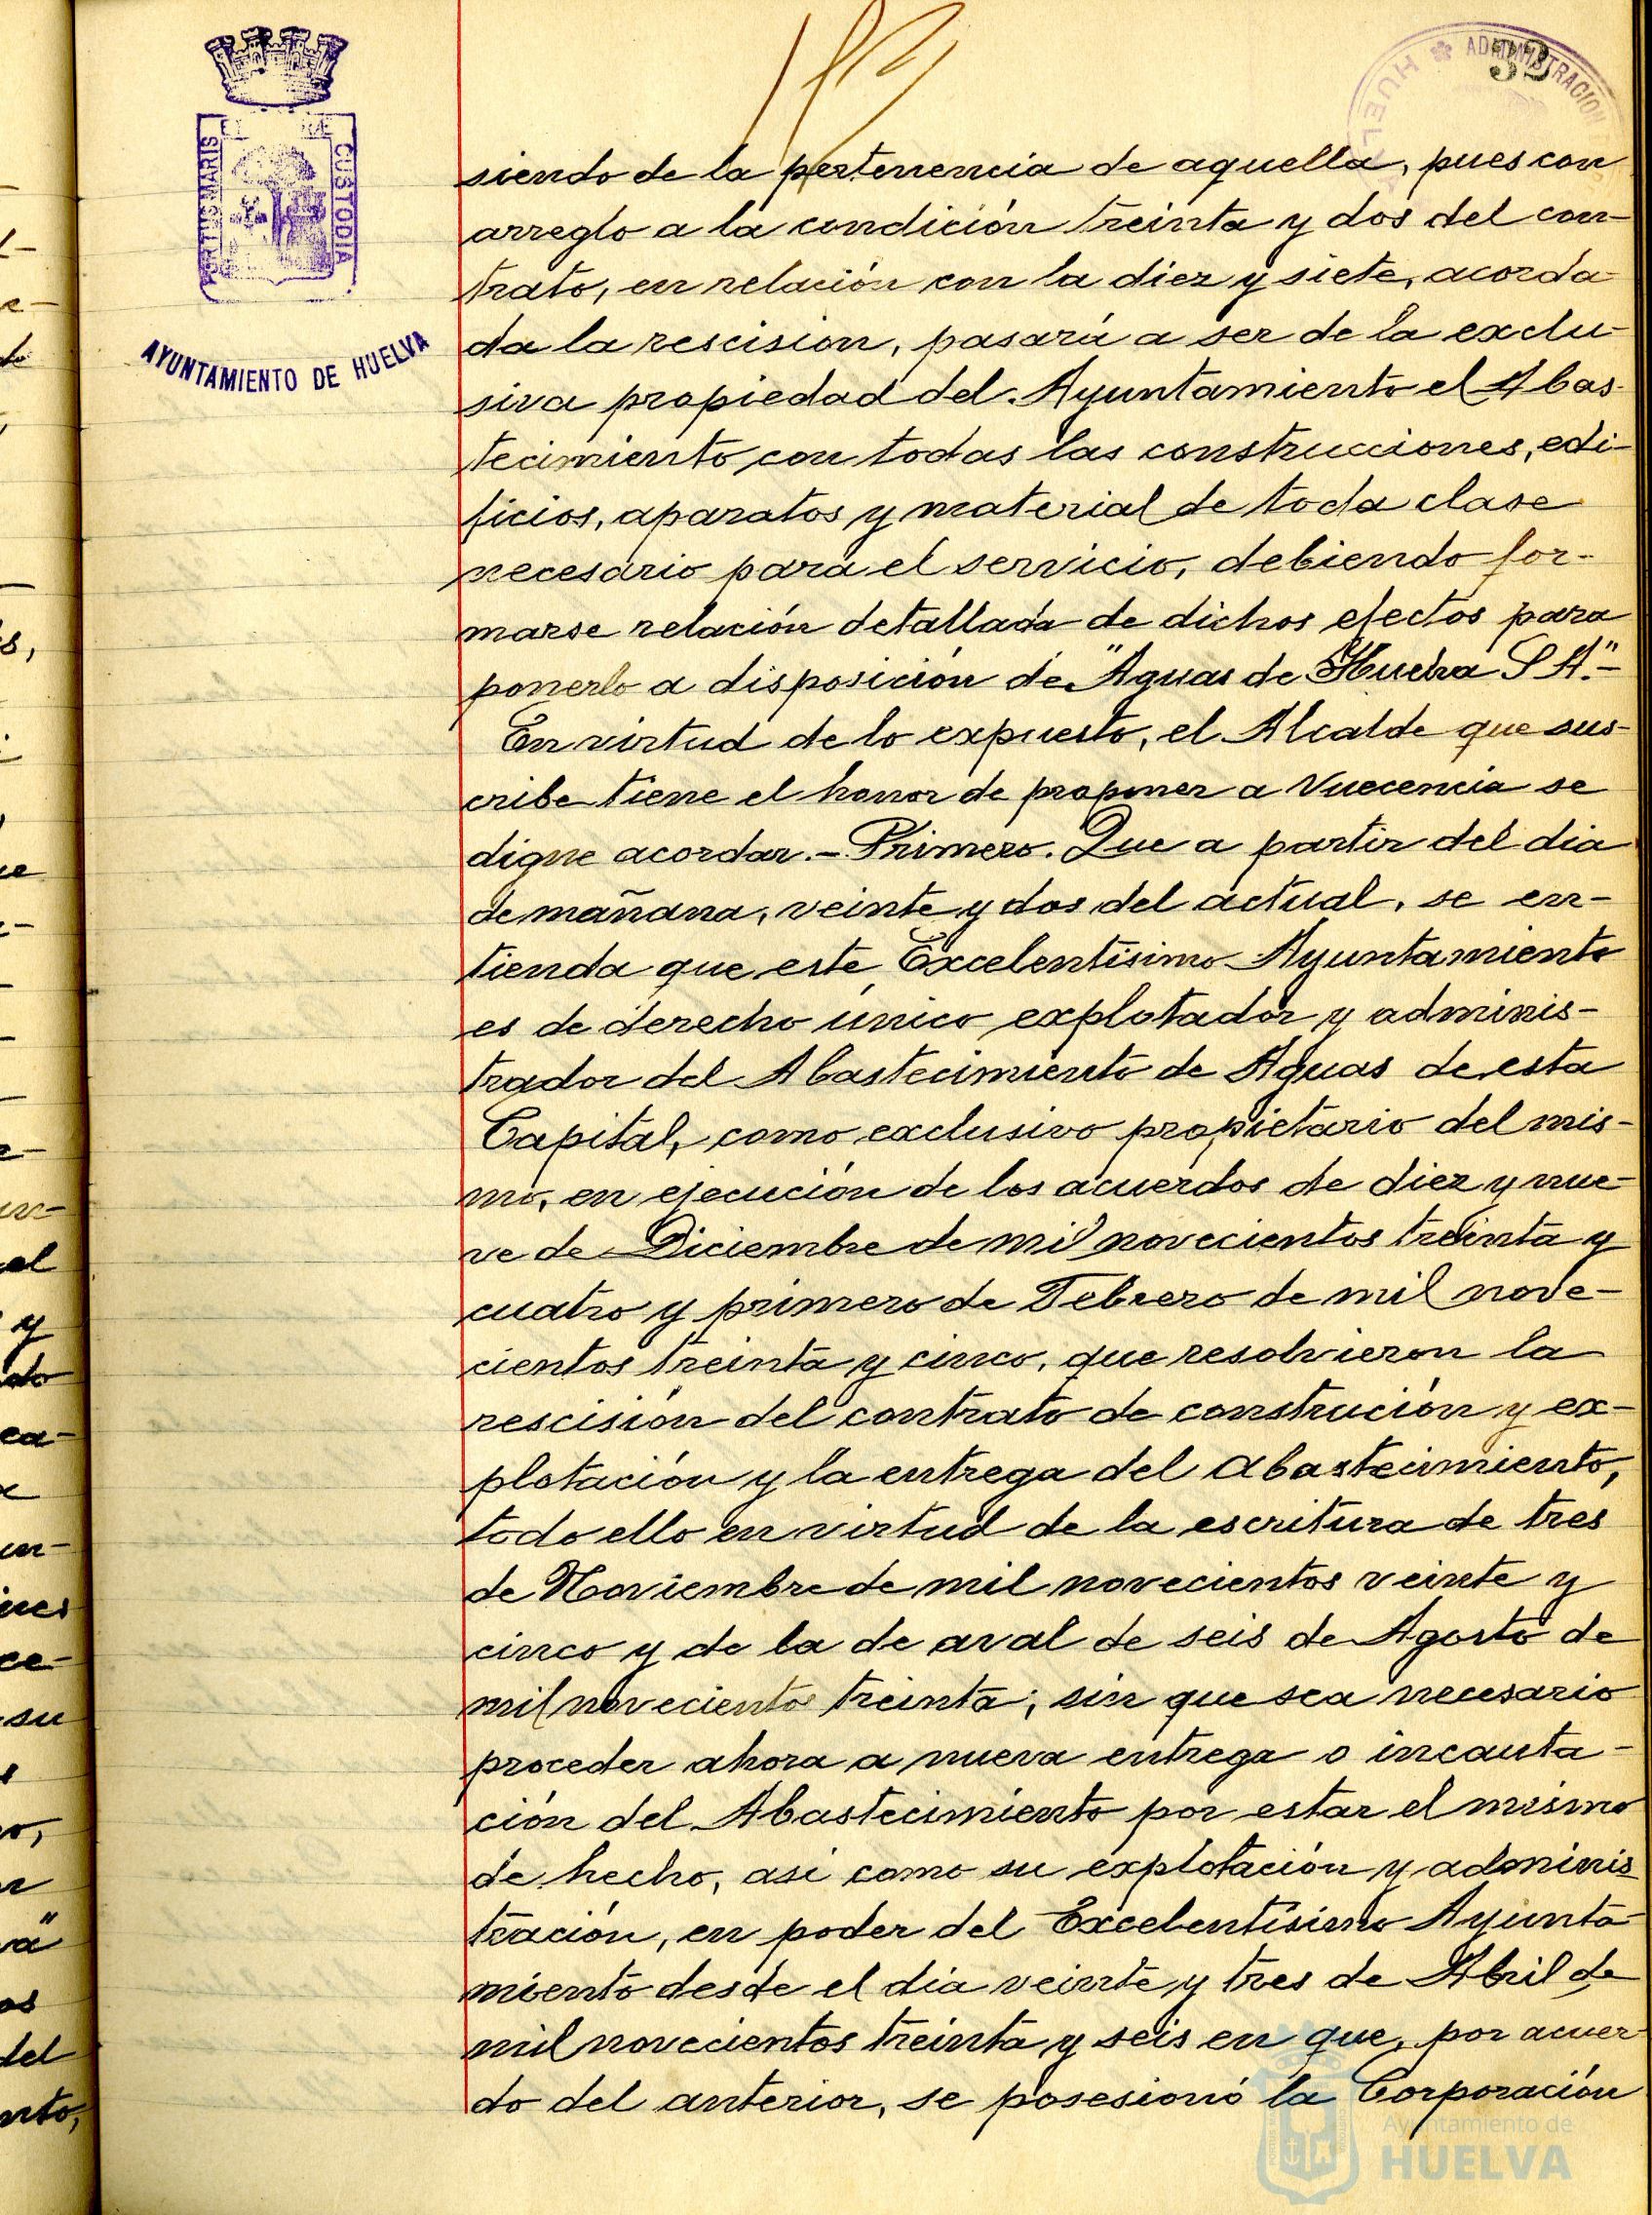 33
ADMINISTRACION
HUELVA
PORTUS MARIS
ET TERRAE
CUSTODIA
AYUNTAMIENTO DE HUELVA
siendo de la pertenencia de aquella, pues con
arreglo a la condición treinta y dos del con-
trato, en relación con la diez y siete, acorda-
da la rescisión, pasará a ser de la exclu-
siva propiedad del Ayuntamiento el Abas-
tecimiento con todas las construcciones, edi-
ficios, aparatos y material de toda clase
necesario para el servicio, debiendo for-
marse relación detallada de dichos efectos para
ponerlo a disposición de "Aguas de Huelva S A."-
En virtud de lo expuesto, el Alcalde que sus-
cribe tiene el honor de proponer a Vuecencia se
digne acordar.- Primero. Que a partir del dia
de mañana, veinte y dos del actual, se en-
tienda que este Excelentísimo Ayuntamiento
es de derecho único explotador y adminis-
trador del Abastecimiento de Aguas de esta
Capital, como exclusivo propietario del mis-
mo, en ejecución de los acuerdos de diez y nue-
ve de Diciembre de mil novecientos treinta y
cuatro y primero de Febrero de mil nove-
cientos treinta y cinco, que resolvieron la
rescisión del contrato de construción y ex-
plotación y la entrega del abastecimiento,
todo ello en virtud de la escritura de tres
de Noviembre de mil novecientos veinte y
cinco y de la de aval de seis de Agosto de
mil novecientos treinta; sin que sea necesario
proceder ahora a nueva entrega o incauta-
ción del Abastecimiento por estar el mismo
de hecho, asi como su explotación y adminis
tración, en poder del Excelentísimo Ayunta-
miento desde el dia veinte y tres de Abril de
mil novecientos treinta y seis en que, por acuer-
do del anterior, se posesionó la Corporación
Ayuntamiento de
HUELVA